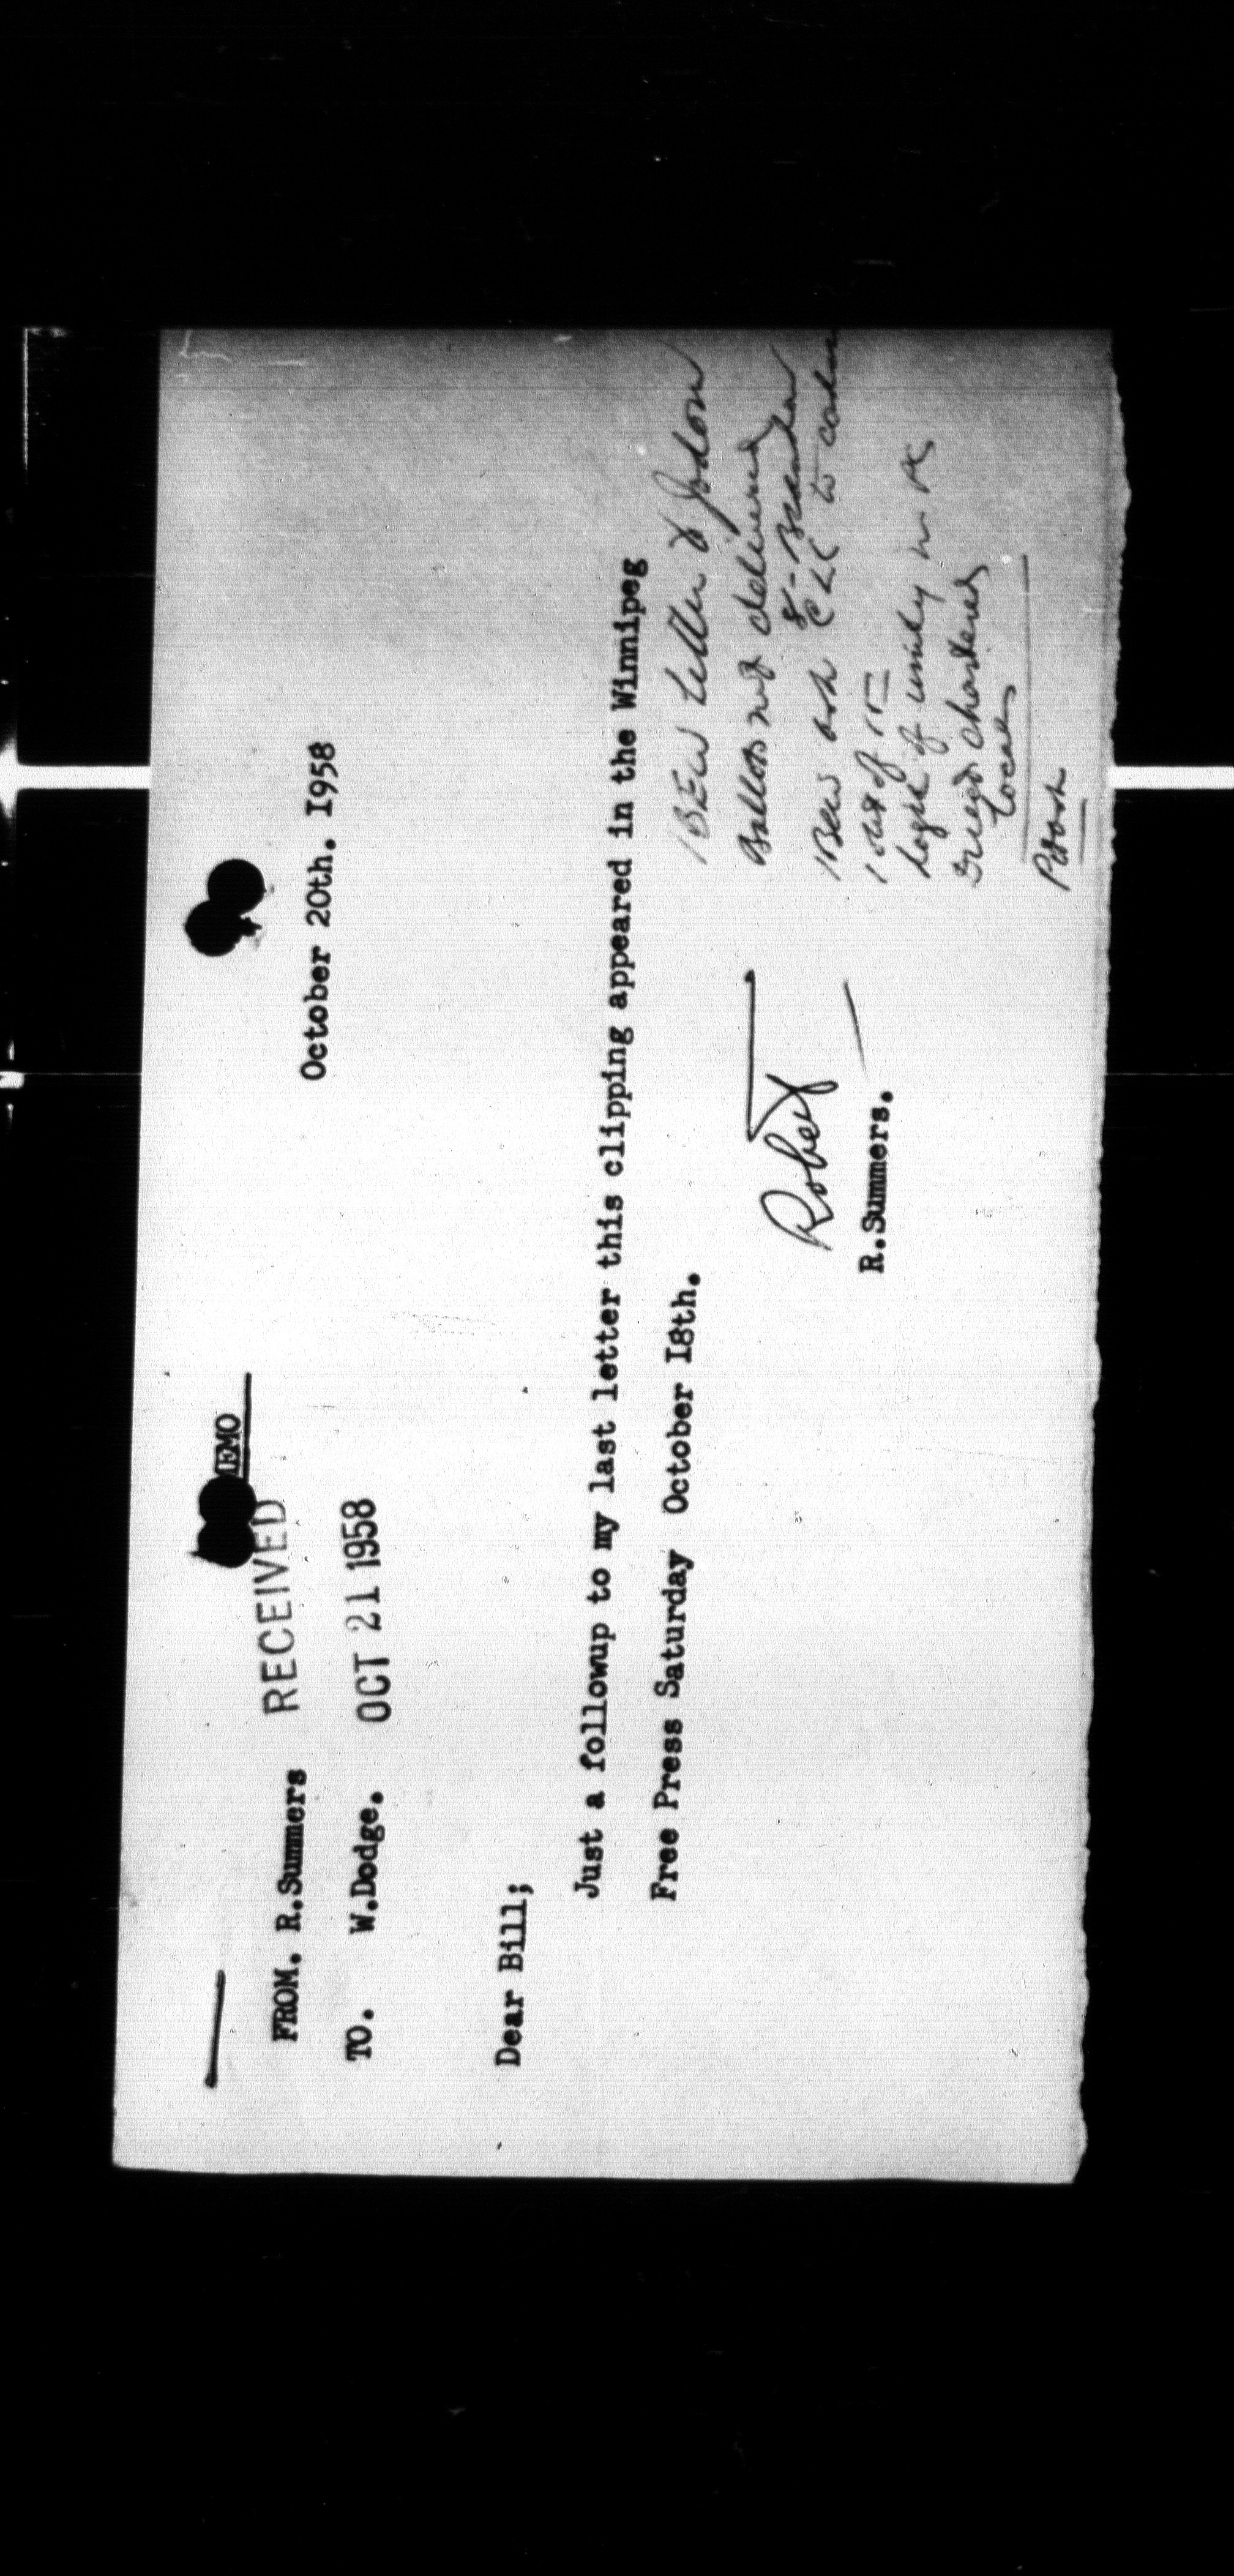 MEMO
October 20th. I958
FROM. R.Summers RECEIVED
TO. W.Dodge. OCT 21 1958
Dear Bill;
Just a followup to my last letter this clipping appeared in the Winnipeg
Free Press Saturday October I8th.
Robert
R.Summers.
IBEW letter to
Ballots not delivered
IBEW ask CLC to
1 out of 15
Logic of unity in
chartered
Locals